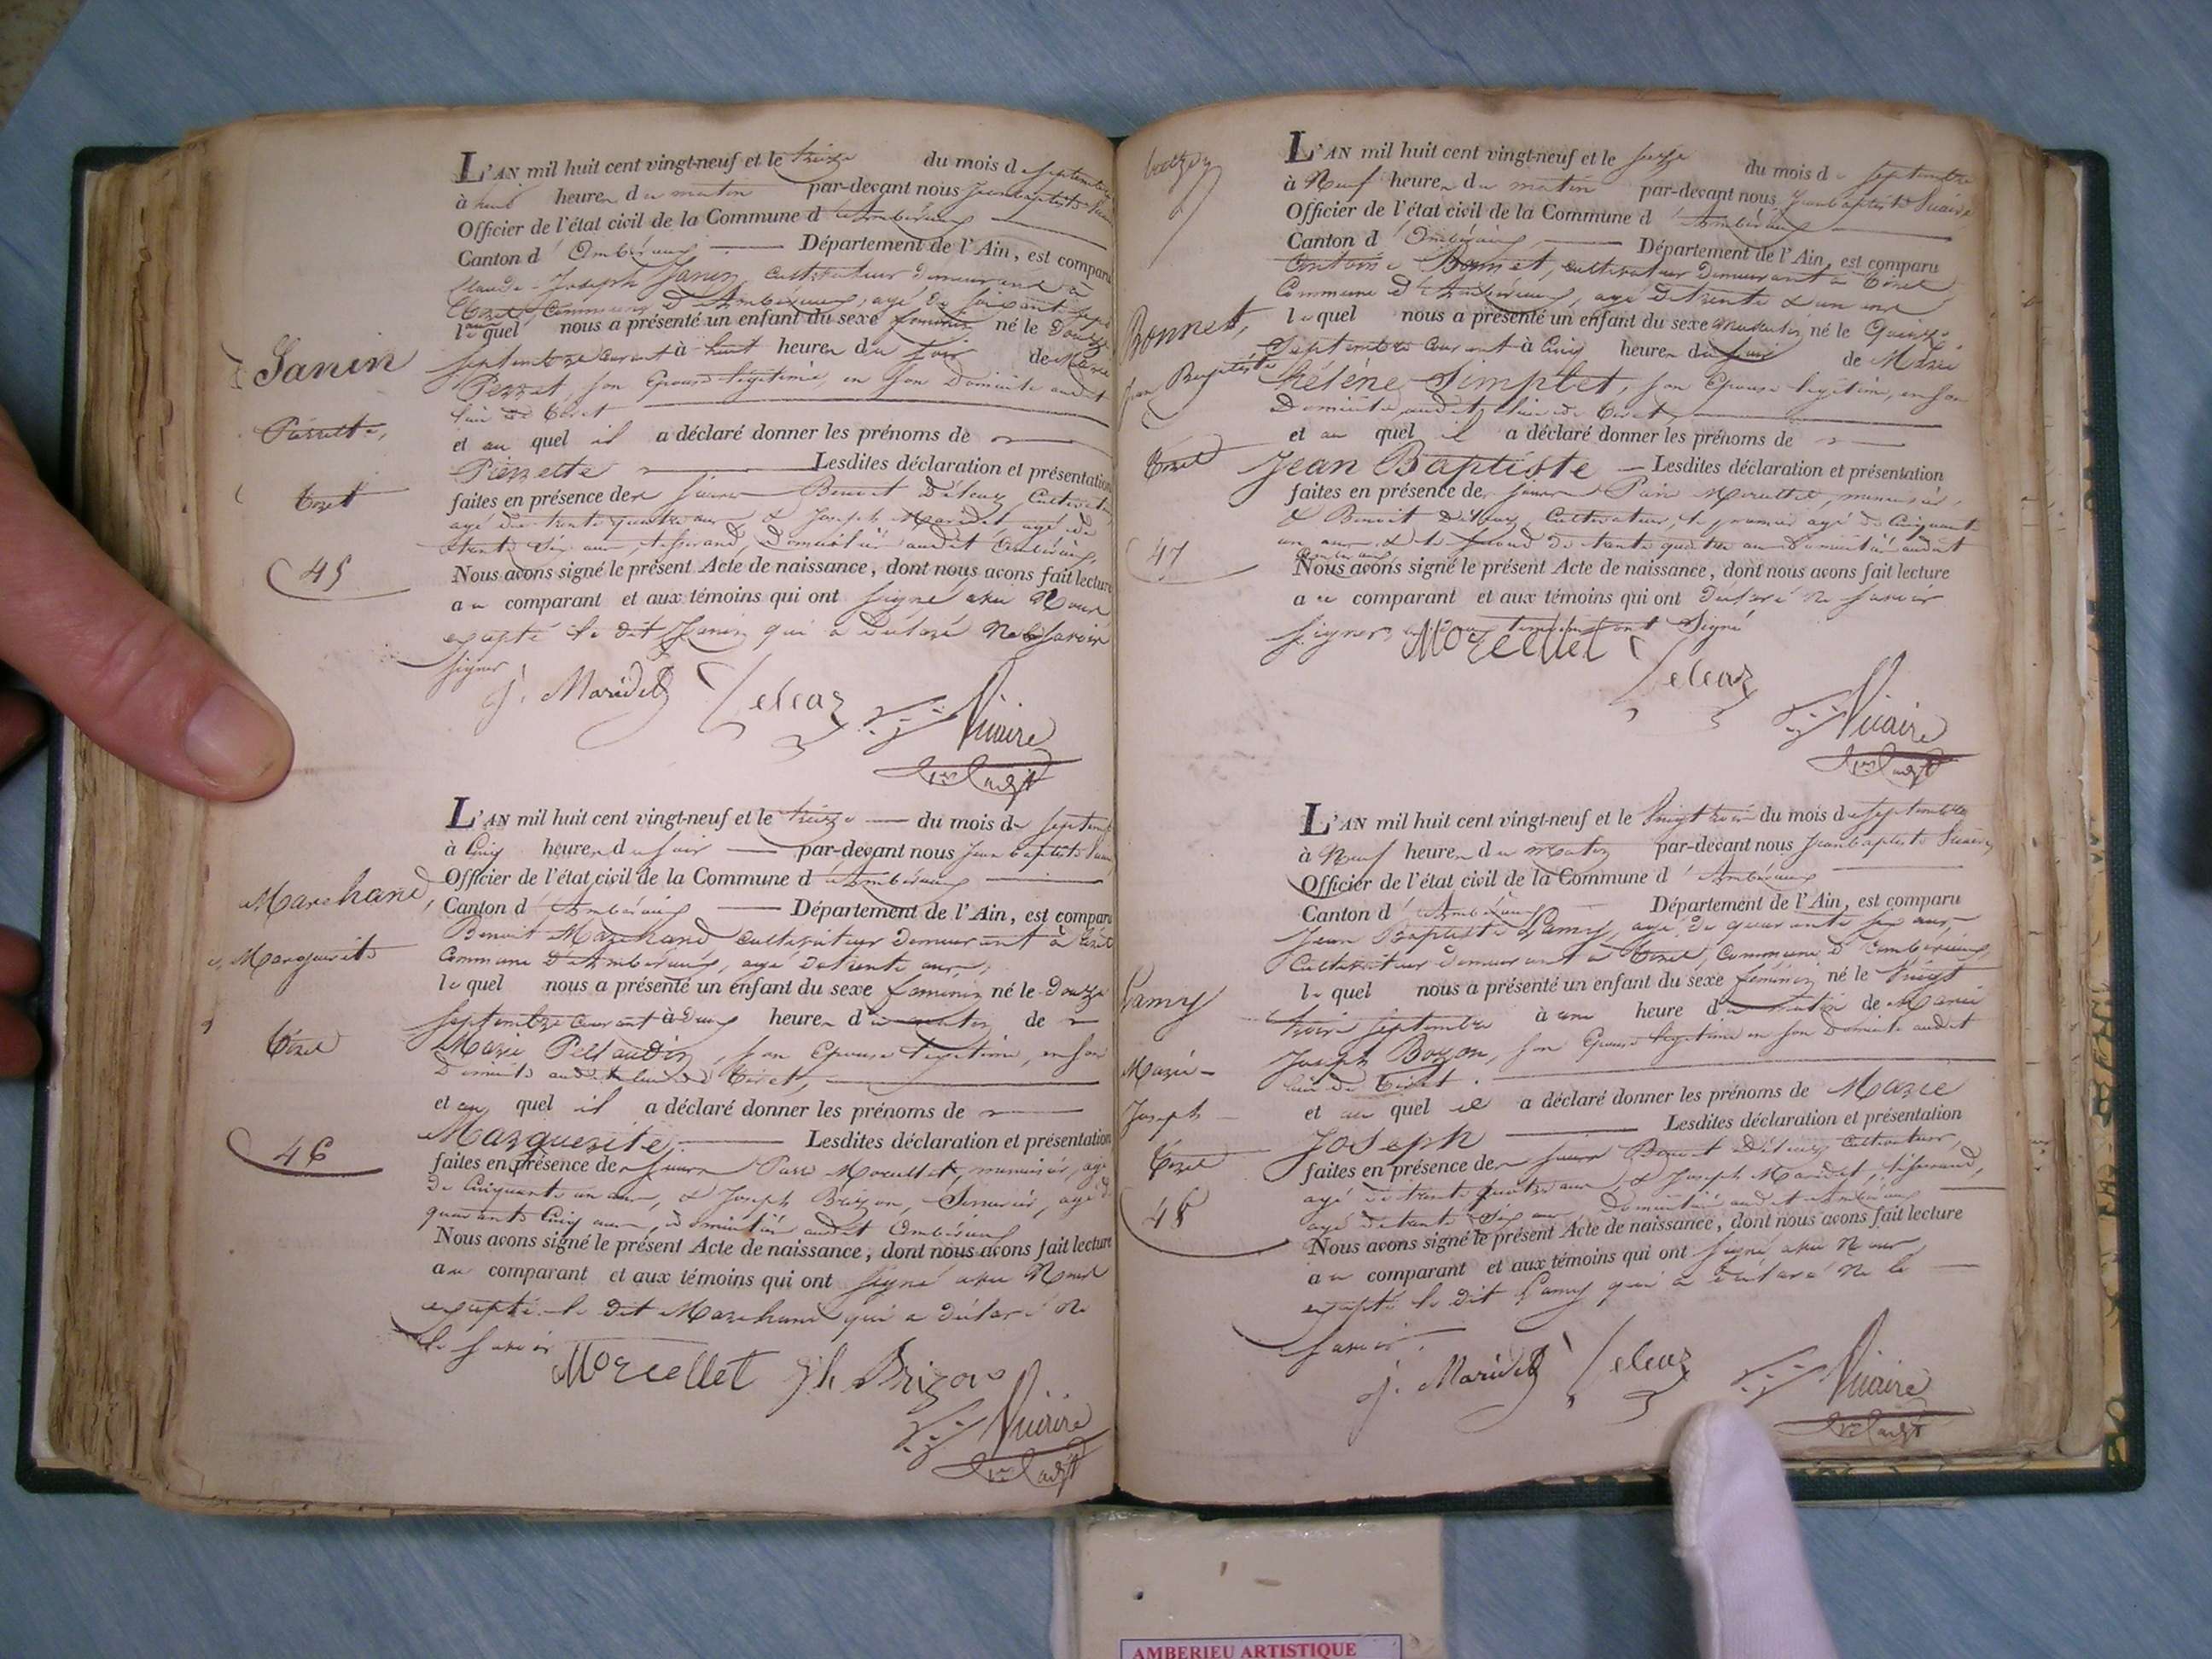 L'AN mil huit cent vingt-neuf et le treize du mois de septembre
à huit heures du matin par-devant nous Jean baptiste
Officier de l'état civil de la Commune d'Ambérieux
Canton d'Ambérieux Département de l'Ain, est comparu
Claude-Joseph Janin, cultivateur demeurant à
Tiret, Commune d'Ambérieux, agé de soixante sept
lequel nous a présenté un enfant du sexe feminin né le Douze
Janin
septembre courant à huit heures du soir de Marie
Perret, son Epouse légitime, en son Domicile audit
lieu de Tiret
Pierrette,
et au quel il a déclaré donner les prénoms de
Pierrette Lesdites déclaration et présentation
Tiret
faites en présence des sieurs Benoit Déleaz Cultivateur
agé de trente quatre ans & Joseph Maridet agé de
trente six ans, tisserand, Domiciliés audit Ambérieux,
45
Nous avons signé le présent Acte de naissance, dont nous avons fait lecture
au comparant et aux témoins qui ont signé avec Nous
excepté le dit Janin qui a déclaré Ne le savoir
signer
J. Maridet Deleaz Vicaire
L'AN mil huit cent vingt-neuf et le treize du mois de septembre
à Cinq heures du soir par-devant nous Jean baptiste
Officier de l'état civil de la Commune d'Ambérieux
Marchand,
Canton d'Ambérieux Département de l'Ain, est comparu
Benoit Marchand Cultivateur Demeurant à Tiret
Marguerite
Commune D'Ambérieux, agé de trente ans,
lequel nous a présenté un enfant du sexe feminin né le Douze
septembre courant à Deux heures du matin de
Tiret
Marie Pellaudin, son Epouse légitime, en son
Domicile audit lieu de Tiret,
et au quel il a déclaré donner les prénoms de
Marguerite, Lesdites déclaration et présentation
46
faites en présence des sieurs Morcellet, menuisier, agé
de Cinquante un ans, & Joseph Brizon, Serrurier, agé de
quarante Cinq ans, domiciliés audit Ambérieux
Nous avons signé le présent Acte de naissance, dont nous avons fait lecture
au comparant et aux témoins qui ont signé avec Nous
excepté le dit Marchand qui a déclaré Ne
le savoir
Morcellet Jh Brizon
Vicaire
L'AN mil huit cent vingt-neuf et le seize du mois de septembre
à Neuf heures du matin par-devant nous Jean baptiste Vicaire
Officier de l'état civil de la Commune d'Ambérieux
Canton d'Ambérieux Département de l'Ain, est comparu
Antoine Bonnet, cultivateur Demeurant à Tiret
Commune d'Ambérieux, agé de trente & un ans
lequel nous a présenté un enfant du sexe Masculin né le Quinze
Bonnet,
septembre courant à Cinq heures du soir de Marie
Jean Baptiste
Hélène Simplet, son Epouse légitime, en son
Domicile audit lieu de Tiret
et au quel il a déclaré donner les prénoms de
Tiret
Jean Baptiste Lesdites déclaration et présentation
faites en présence des sieurs Morcellet, menuisier,
& Benoit Déleaz, Cultivateur, le premier agé de Cinquante
un ans & le second de trente quatre ans Domiciliés audit
Ambérieux
47
Nous avons signé le présent Acte de naissance, dont nous avons fait lecture
au comparant et aux témoins qui ont déclaré ne savoir
signer, les deux temoins ont signé
Morcellet Deleaz
Vicaire
L'AN mil huit cent vingt-neuf et le Vingt trois du mois de septembre
à Neuf heures du matin par-devant nous Jean baptiste Vicaire
Officier de l'état civil de la Commune d'Ambérieux
Canton d'Ambérieux Département de l'Ain, est comparu
Jean Baptiste Lamy, agé de quarante six ans,
Cultivateur demeurant à Tiret, Commune d'Ambérieux,
lequel nous a présenté un enfant du sexe féminin né le Vingt
Lamy
trois septembre à une heure du matin de Marie
Joseph Bozon, son Epouse légitime en son Domicile audit
lieu de Tiret.
Marie-
et au quel il a déclaré donner les prénoms de Marie
Joseph
Joseph Lesdites déclaration et présentation
Tiret
faites en présence des sieurs Benoit Déleaz cultivateur,
agé de trente quatre ans, & Joseph Maridet, tisserand,
48
agé de trente six ans, Domiciliés audit Ambérieux
Nous avons signé le présent Acte de naissance, dont nous avons fait lecture
au comparant et aux témoins qui ont signé avec Nous
excepté le dit Lamy qui a déclaré Ne le
savoir.
J. Maridet Deleaz Vicaire
AMBERIEU ARTISTIQUE